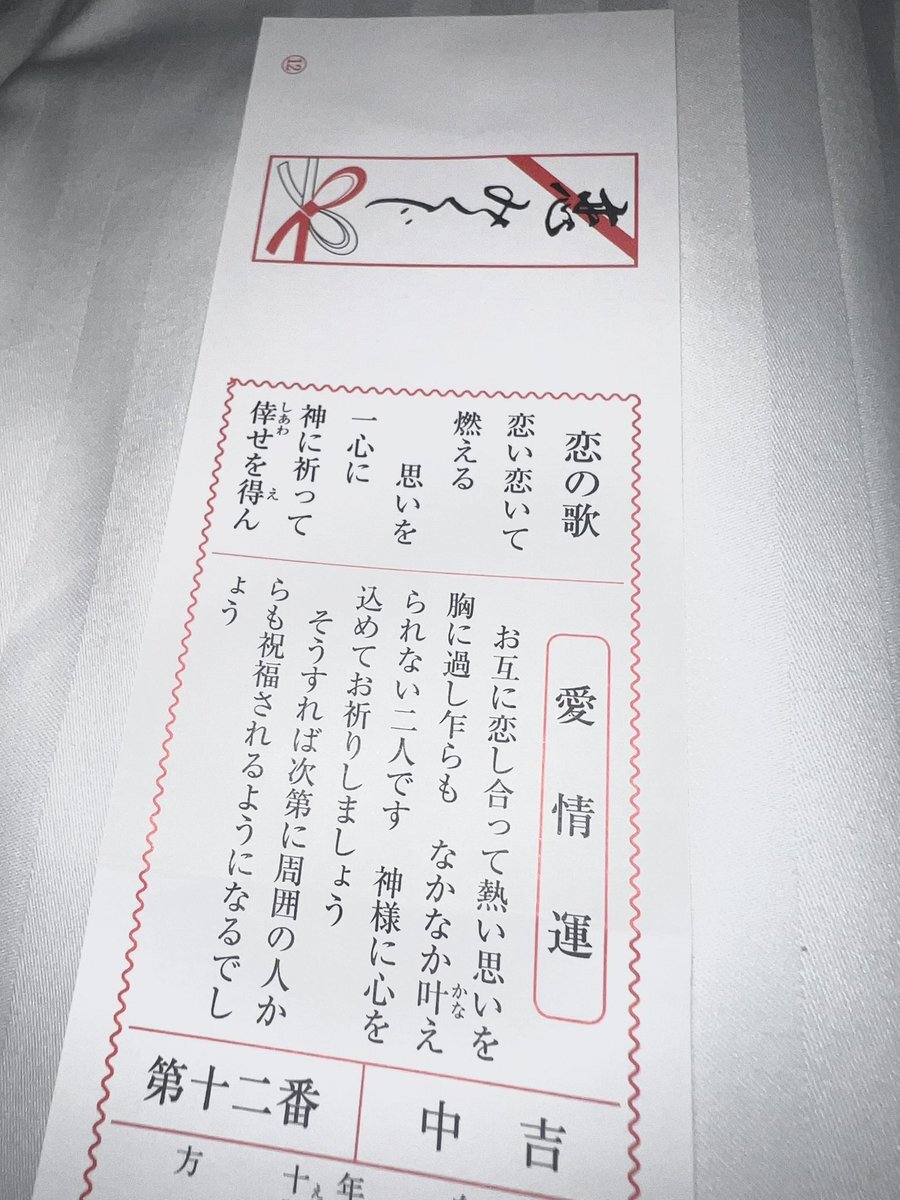 ⑫
恋みくじ
恋の歌
恋い恋いて
燃える
思いを
一心に
神に祈って
倖せを得ん
しあわ
え
愛情運
お互に恋し合って熱い思いを
胸に過し乍らも なかなか叶え
かな
られない二人です 神様に心を
込めてお祈りしましょう
そうすれば次第に周囲の人か
らも祝福されるようになるでし
ょう
第十二番
中吉
年
十
方